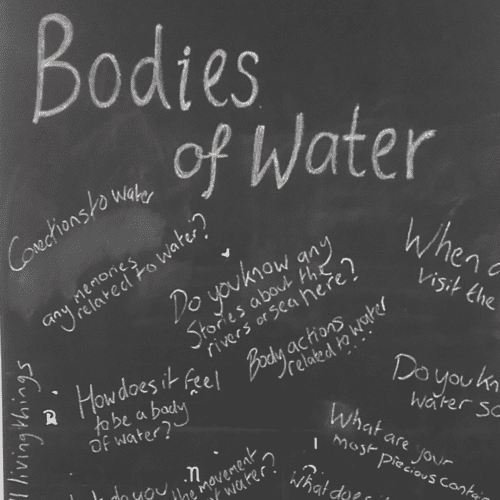 Bodies
of Water
Conections to water
any memories
related to water?
Do you know any
Stories about the
rivers or sea here?
When
visit the
Body actions
related to water....
How does it feel
to be a body
of water?
Do you kn
water so
What are your
most precious conta
do you
the movement
water?
What does
living things